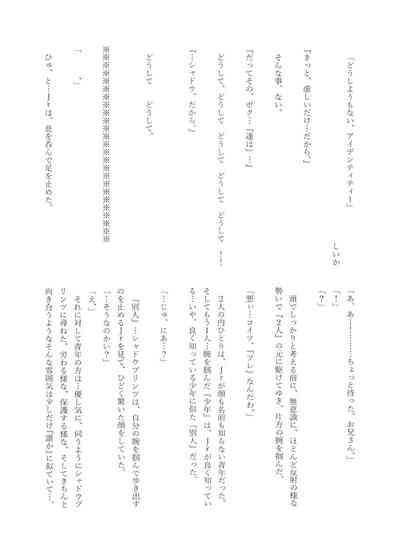 「どうしようもない、アイデンティティー」
しいか
『きっと、虚しいだけ…だから。』
そんな事、ない。
『だってその、ボク…『達は』…』
どうして、どうして どうして どうして ――
『…シャドウ、だから。』
どうして どうして。
※※※※※※※※※※※※※※※※※※※※
「　　、」
ひゅ、と…Jrは、息を呑んで足を止めた。
「あ、あー…………ちょっと待った。お兄さん。」
「！」
「？」
頭でしっかりと考える前に、無意識に、ほとんど反射の様な
勢いで『2人』の元に駆けてゆき、片方の腕を掴んだ。
「悪ぃ…コイツ、『ツレ』なんだわ。」
2人の内ひとりは、Jrが顔も名前も知らない青年だった。
そしてもう1人…腕を掴んだ『少年』は、Jrが良く知ってい
る…いや、良く知っている少年に似た『別人』だった。
「…じゅ、にあ…？」
『別人』…シャドウプリンツは、自分の腕を掴んで歩き出す
のを止めるJrを見て、ひどく驚いた顔をしていた。
「…そうなのかい？」
「え、」
それに対して青年の方は…優し気に、伺うようにシャドウプ
リンツに尋ねた。労わる様な、保護する様な、そしてきちんと
向き合うようなそんな雰囲気は少しだけ『誰か』に似ていて…、